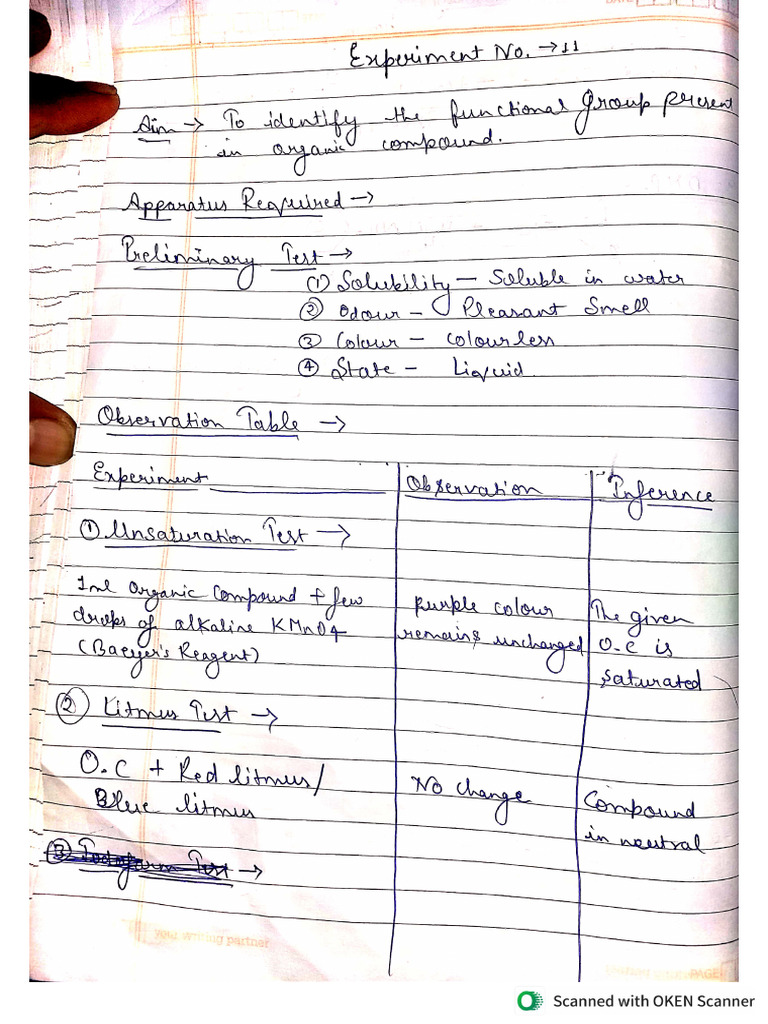 Experiment No. → 11
Aim → To identify the functional Group present
in organic compound.
Apparatus Required →
Preliminary Test →
① Solubility — Soluble in water
② Odour — Pleasant Smell
③ Colour — Colourless
④ State — Liquid
Observation Table →
Experiment | Observation | Inference
① Unsaturation Test →
1ml Organic Compound + few | Purple colour | The given
drops of alkaline KMnO4 | remains unchanged | O.C is
(Baeyer's Reagent) | saturated
② Litmus Test →
O.C + Red litmus/ | No change | Compound
Blue litmus | in neutral
③ Iodoform Test →
your writing partner
Scanned with OKEN Scanner